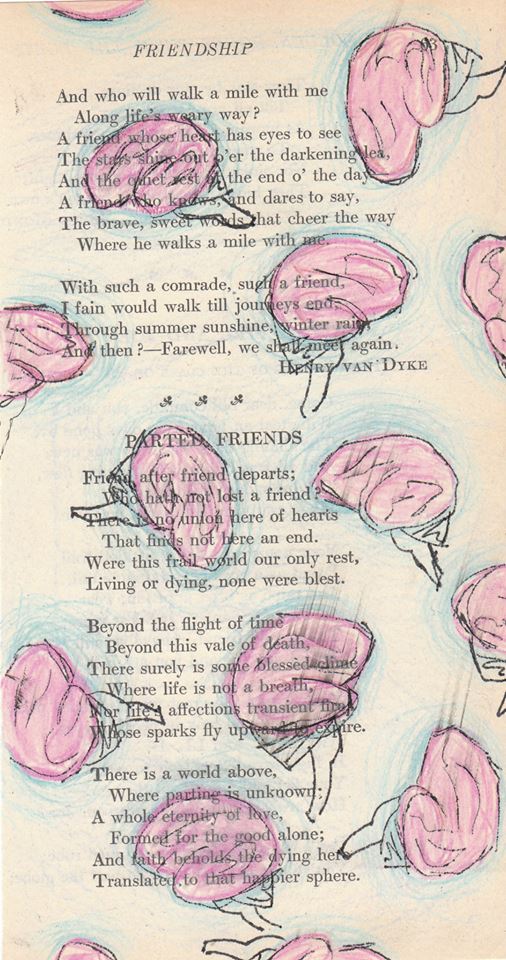 FRIENDSHIP 93
And who will walk a mile with me
Along life's weary way?
A friend whose heart has eyes to see
The stars shine out o'er the darkening lea,
And the quiet rest at the end o' the day—
A friend who knows, and dares to say,
The brave, sweet words that cheer the way
Where he walks a mile with me.
With such a comrade, such a friend,
I fain would walk till journeys end,
Through summer sunshine, winter rain,
And then?—Farewell, we shall meet again.
HENRY VAN DYKE
PARTED FRIENDS
Friend after friend departs;
Who hath not lost a friend?
There is no union here of hearts
That finds not here an end.
Were this frail world our only rest,
Living or dying, none were blest.
Beyond the flight of time
Beyond this vale of death,
There surely is some blessed clime
Where life is not a breath,
Nor life's affections transient fire,
Whose sparks fly upward to expire.
There is a world above,
Where parting is unknown;
A whole eternity of love,
Formed for the good alone;
And faith beholds the dying here
Translated to that happier sphere.